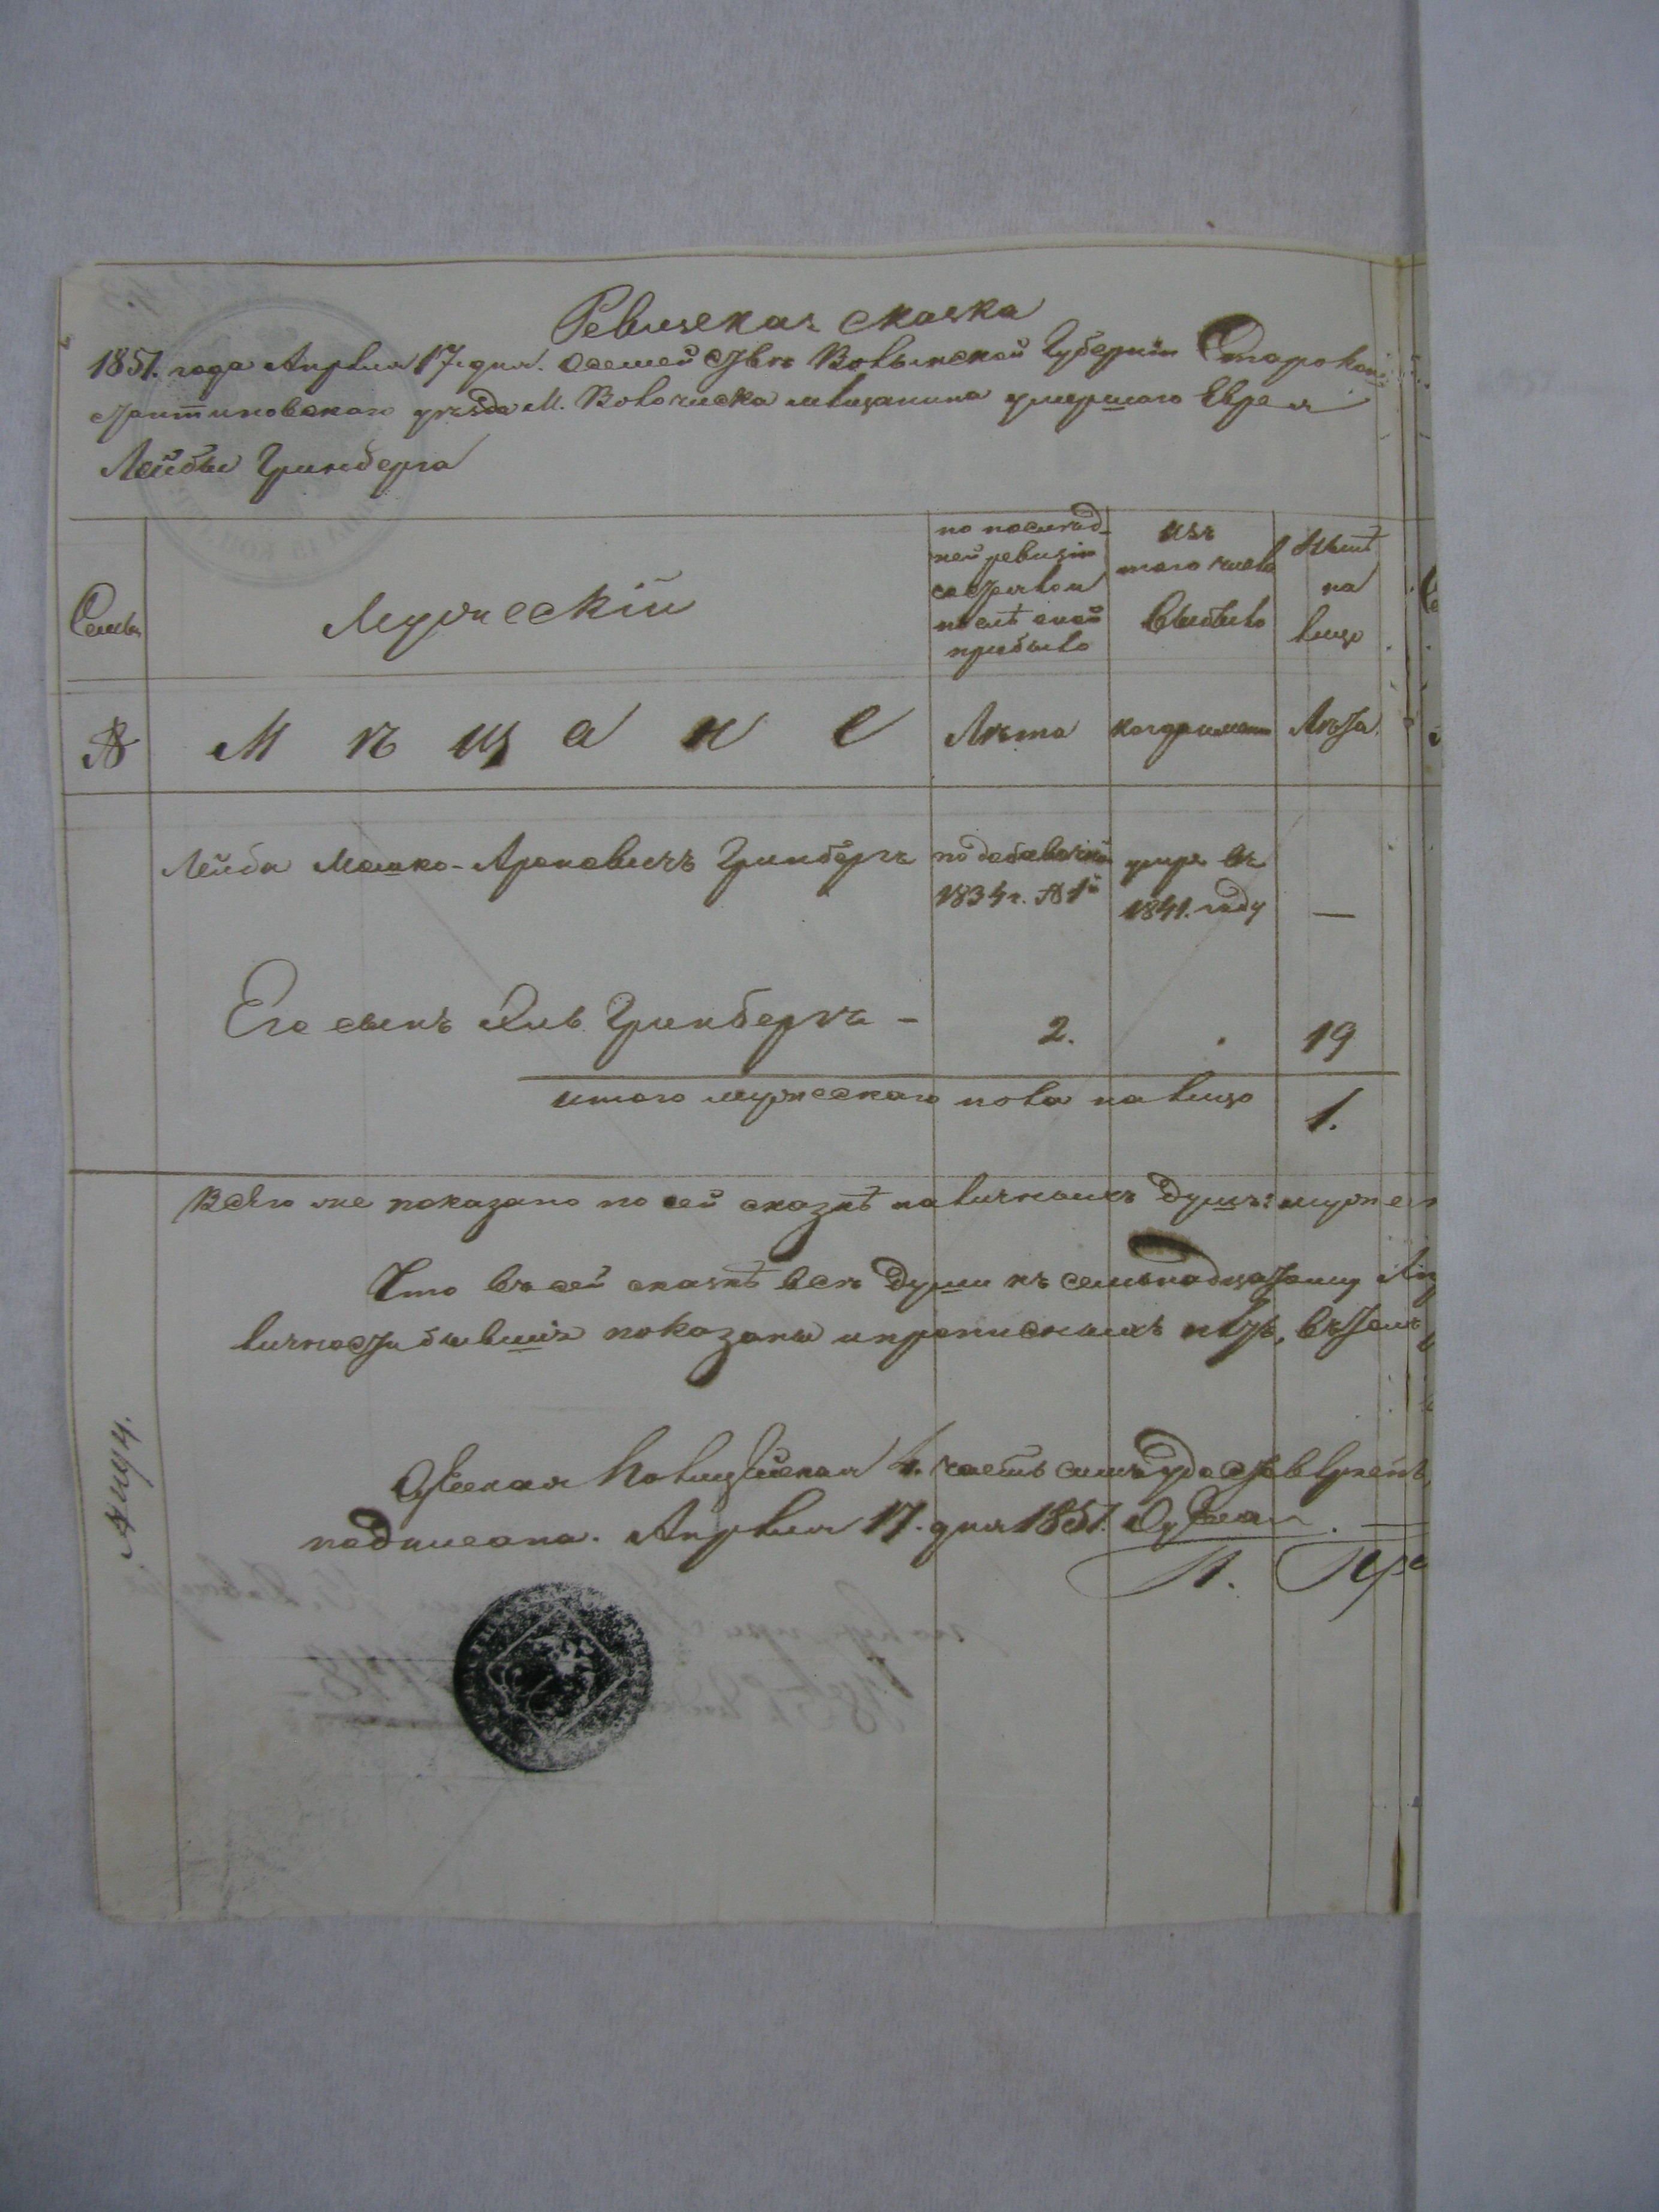 Ревизская сказка
1851. года Апрѣля 17. дня. о семействѣ Волынской Губерніи Старокон-
стантиновскаго уѣзда М. Волочиска мѣщанина умершаго Еврея
Лейбы Гринберга
Семья
Мужескій
по послѣд-
ней ревизіи
состояло и
послѣ оной
прибыло
изъ
того числа
выбыло
нынѣ
на
лицо
№
Мѣщане
Лѣта
когда именно
Лѣта.
Лейба Мошко-Ароновичъ Гринбергъ
по добавочной
1834 г. № 1й
умре въ
1841. году
—
Его сынъ Гринбергъ -
2.
.
19
итого мужескаго пола на лицо
1.
Всѣго же показано по сей сказкѣ наличныхъ душъ: муже
Что въ сей сказкѣ всѣ души къ семьнадцатому Ап
личности бывшія показаны и прописныхъ нѣтъ, въ томъ
Одеская Полицейская 4. часть симъ удостовѣряетъ,
подписана. Апрѣля 17. дня 1851. Одесса.